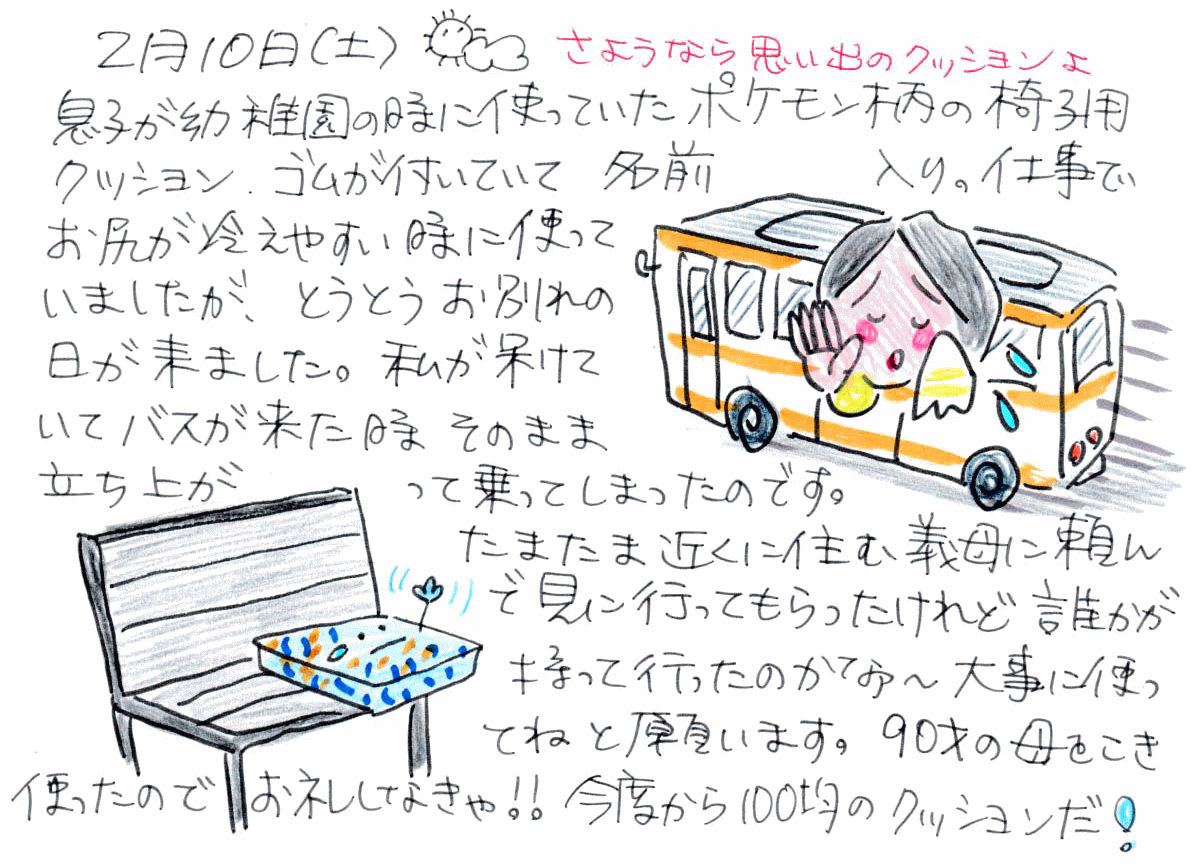 2月10日(土) さようなら思い出のクッションよ
息子が幼稚園の時に使っていたポケモン柄の椅子用
クッション.ゴムが付いていて 名前 入り。仕事で
お尻が冷えやすい時に使って
いましたが、とうとうお別れの
日が来ました。私が呆けて
いてバスが来た時 そのまま
立ち上が って乗ってしまったのです。
たまたま近くに住む義母に頼ん
で見に行ってもらったけれど誰かが
持って行ったのかなァ～大事に使っ
てねと願います。90才の母をこき
使ったのでお礼しなきゃ!!今度から100均のクッションだ!